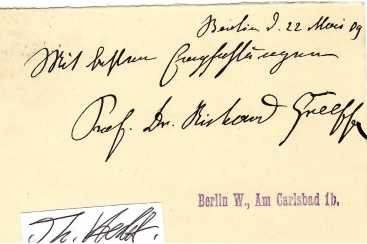 Berlin d. 22 Mai 09
Mit besten Empfehlungen
Prof. Dr. Richard
Berlin W., Am Carlsbad 1b.
Th.